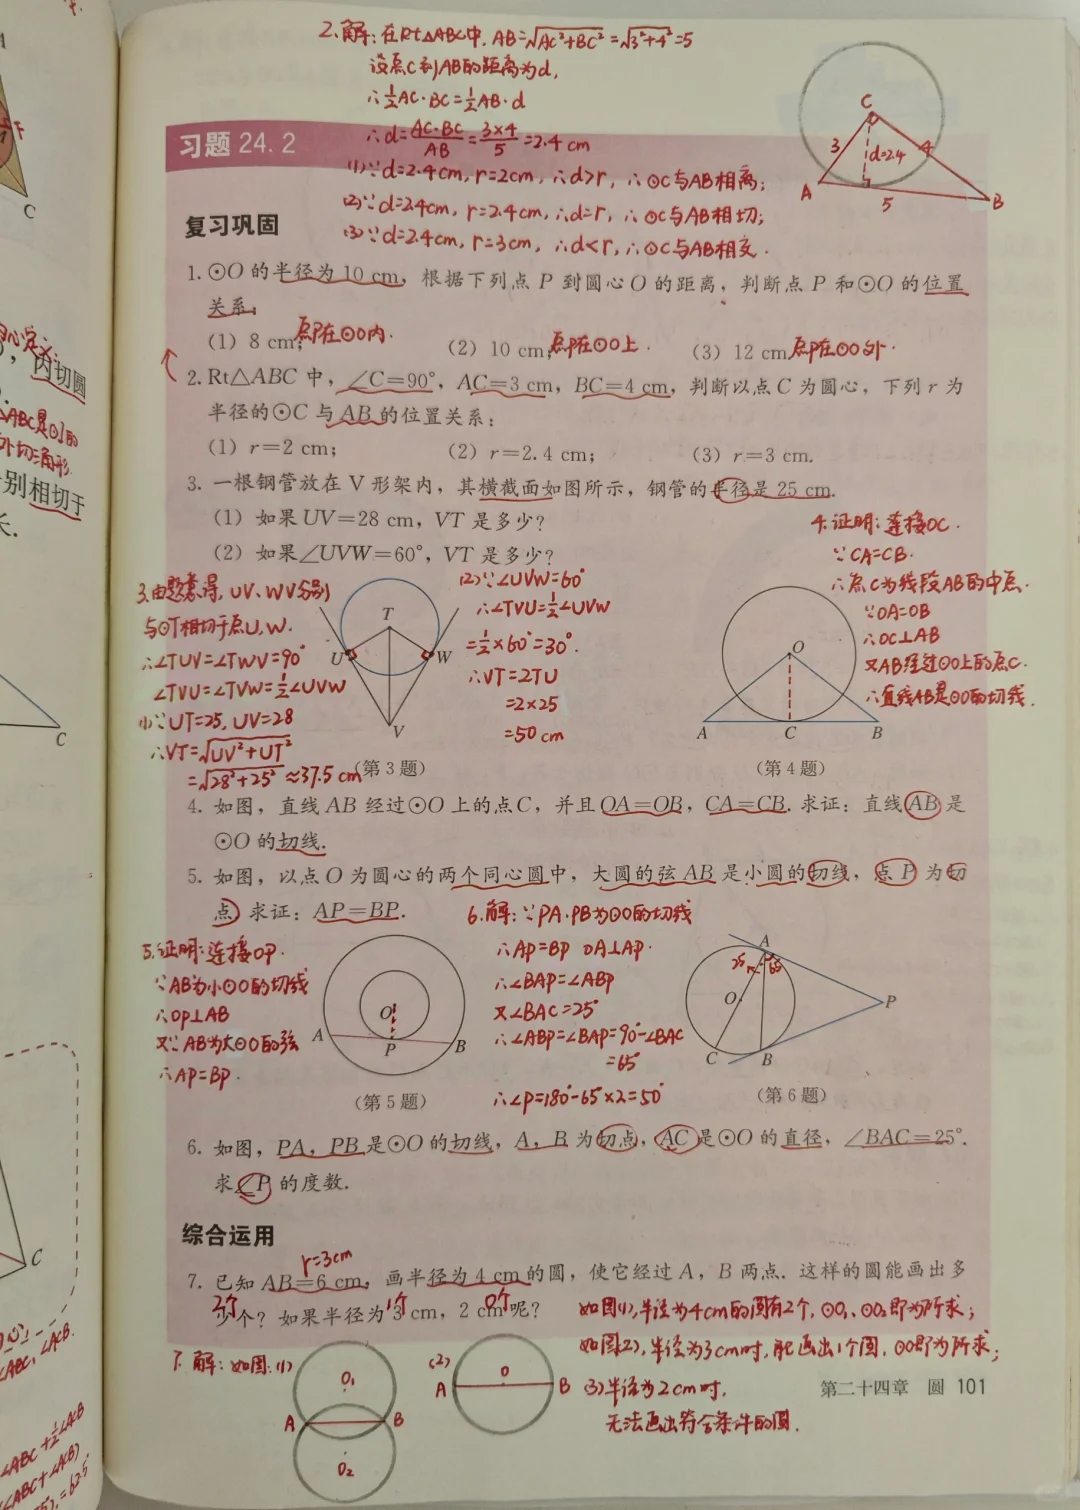 2.解:在Rt△ABC中,AB=√AC²+BC²=√3²+4²=5
设点C到AB的距离为d,
∴½AC·BC=½AB·d
∴d=AC·BC/AB=3×4/5=2.4cm
(1)∵d=2.4cm,r=2cm,∴d>r,∴⊙C与AB相离;
(2)∵d=2.4cm,r=2.4cm,∴d=r,∴⊙C与AB相切;
(3)∵d=2.4cm,r=3cm,∴d<r,∴⊙C与AB相交.
C
3
d=2.4
4
A
5
B
习题 24.2
复习巩固
1. ⊙O 的半径为 10 cm,根据下列点 P 到圆心 O 的距离,判断点 P 和⊙O 的位置
关系:
(1) 8 cm; 点P在⊙O内. (2) 10 cm; 点P在⊙O上. (3) 12 cm. 点P在⊙O外.
2. Rt△ABC 中,∠C=90°,AC=3 cm,BC=4 cm,判断以点 C 为圆心,下列 r 为
半径的⊙C 与 AB 的位置关系:
(1) r=2 cm; (2) r=2.4 cm; (3) r=3 cm.
3. 一根钢管放在 V 形架内,其横截面如图所示,钢管的半径是 25 cm.
(1) 如果 UV=28 cm,VT 是多少?
(2) 如果∠UVW=60°,VT 是多少?
3.由题意得,UV、WV分别
与⊙T相切于点U,W.
∴∠TUV=∠TWV=90°
∠TVU=∠TVW=½∠UVW
(1)∵UT=25,UV=28
∴VT=√UV²+UT²
=√28²+25²≈37.5cm
T
U
W
V
(第 3 题)
(2)∵∠UVW=60°
∴∠TVU=½∠UVW
=½×60°=30°.
∴VT=2TU
=2×25
=50cm
4.证明:连接OC.
∵CA=CB.
∴点C为线段AB的中点.
∵OA=OB
∴OC⊥AB
又AB经过⊙O上的点C.
∴直线AB是⊙O的切线.
O
A
C
B
(第 4 题)
4. 如图,直线 AB 经过⊙O 上的点 C,并且 OA=OB,CA=CB. 求证:直线 AB 是
⊙O 的切线.
5. 如图,以点 O 为圆心的两个同心圆中,大圆的弦 AB 是小圆的切线,点 P 为切
点. 求证:AP=BP.
5.证明:连接OP.
∵AB为小⊙O的切线
∴OP⊥AB
又∵AB为大⊙O的弦
∴AP=BP.
O
A
P
B
(第 5 题)
6.解:∵PA,PB为⊙O的切线
∴AP=BP OA⊥AP.
∴∠BAP=∠ABP
又∠BAC=25°
∴∠ABP=∠BAP=90°-∠BAC
=65°
∴∠P=180°-65°×2=50°
A
25°
65
O
P
C
B
(第 6 题)
6. 如图,PA,PB 是⊙O 的切线,A,B 为切点,AC 是⊙O 的直径,∠BAC=25°.
求∠P 的度数.
综合运用
r=3cm
7. 已知 AB=6 cm,画半径为 4 cm 的圆,使它经过 A,B 两点. 这样的圆能画出多
2个 1个 0个
少个?如果半径为 3 cm,2 cm 呢?
如图(1),半径为4cm的圆有2个,⊙O₁、⊙O₂即为所求;
如图(2),半径为3cm时,能画出1个圆,⊙O即为所求;
(3)半径为2cm时,
无法画出符合条件的圆.
7.解:如图:(1)
O₁
A
B
O₂
(2)
A
O
B
第二十四章 圆 101
C
内切圆
△ABC是⊙I的
外切三角形.
别相切于
长.
C
C
∠ABC,∠ACB.
∠ABC+½∠ACB
∠ABC+∠ACB)
=62.5°